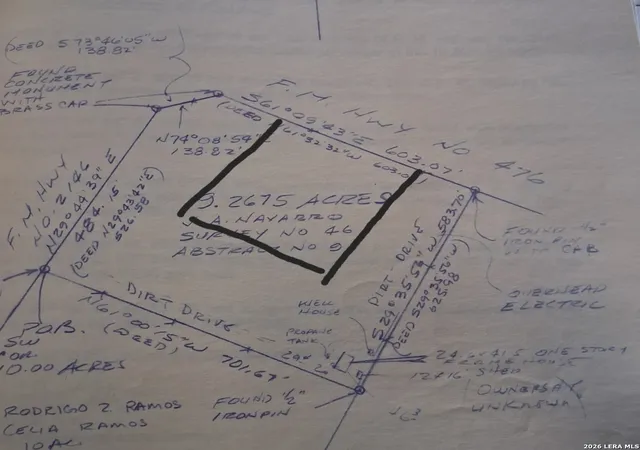 (DEED S73°46'05"W
138.82'
FOUND
CONCRETE
MONUMENT
WITH
BRASS CAP
F. M. HWY NO 476
S61°09'43"E 603.07'
(DEED 61°32'32"W 603.07
N74°08'54"
138.82'
F. M. HWY
NO. 2146
N29°44'39"E
484.15
(DEED N29°43'42"E
526.58
9.2675 ACRES
J. A. NAVARRO
SURVEY NO 46
ABSTRACT NO 9
DIRT-DRIVE
S29°35'56"W 583.70
(DEED S29°35'56"W
625.98
FOUND ½"
IRON PIN
WITH CAP
OVERHEAD
ELECTRIC
DIRT DRIVE
N61°00'15"W 701.67
(DEED)
WELL
HOUSE
PROPANE
TANK
ONE STORY
HOUSE
12x16 SHED
(OWNERSHIP
UNKNOWN)
P.O.B.
SW
COR.
10.00 ACRES
RODRIGO Z RAMOS
CELIA RAMOS
10 AC.
FOUND ½"
IRON PIN
2026 LERA MLS